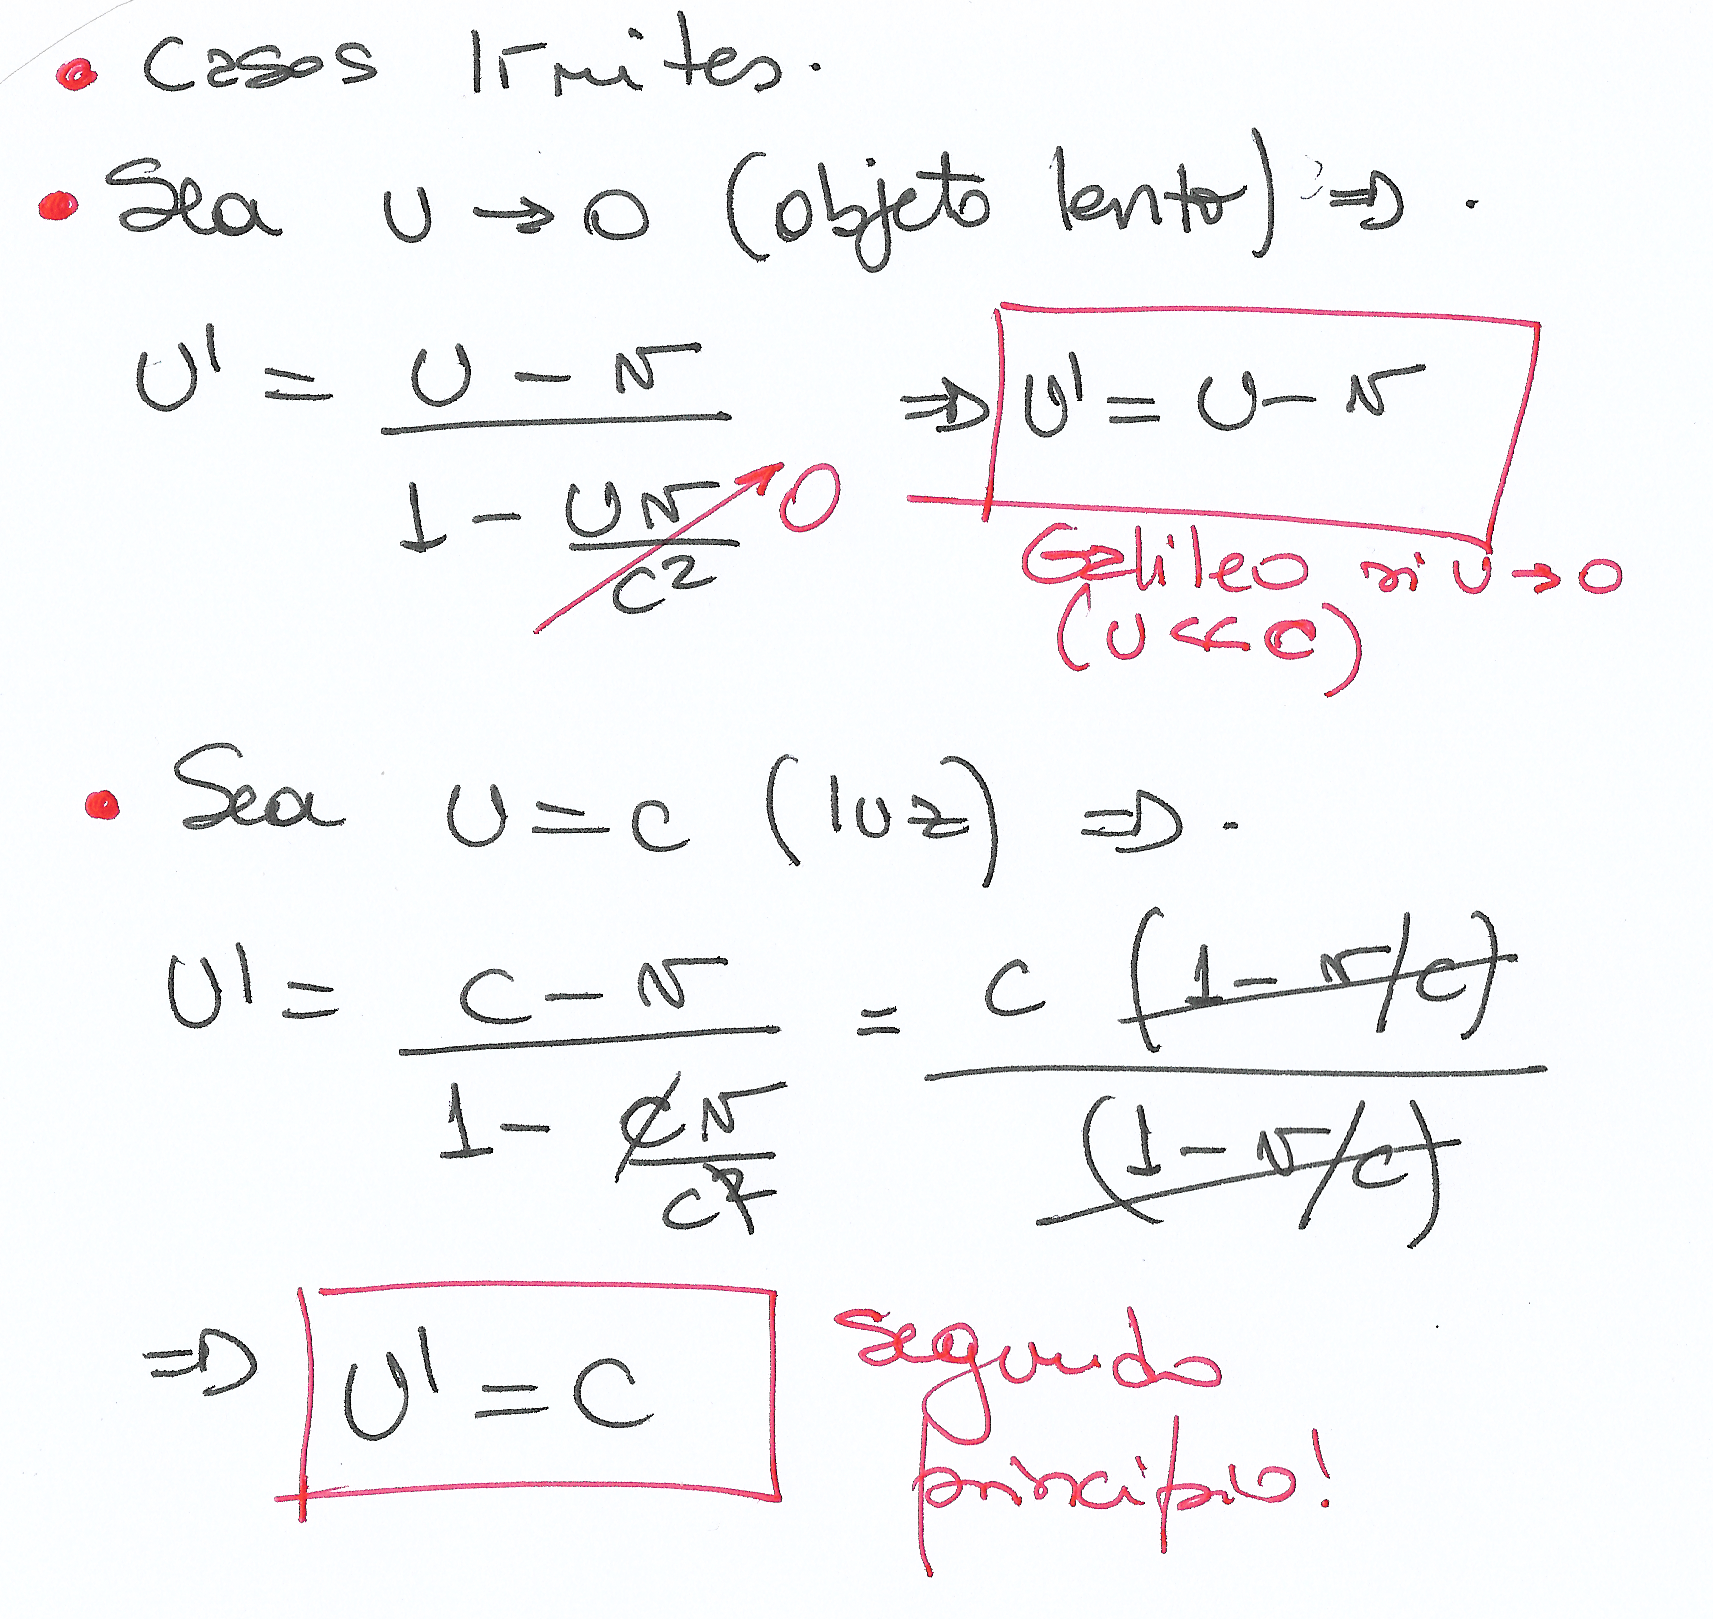 • Casos límites.
• Sea U → 0 (objeto lento) ⇒.
U' = (U - v) / (1 - Uv/c²) → 0 ⇒ U' = U - v
Galileo si U → 0
(U << c)
• Sea U = c (luz) ⇒.
U' = (c - v) / (1 - cv/c²) = c (1 - v/c) / (1 - v/c)
⇒ U' = c
segundo
principio!